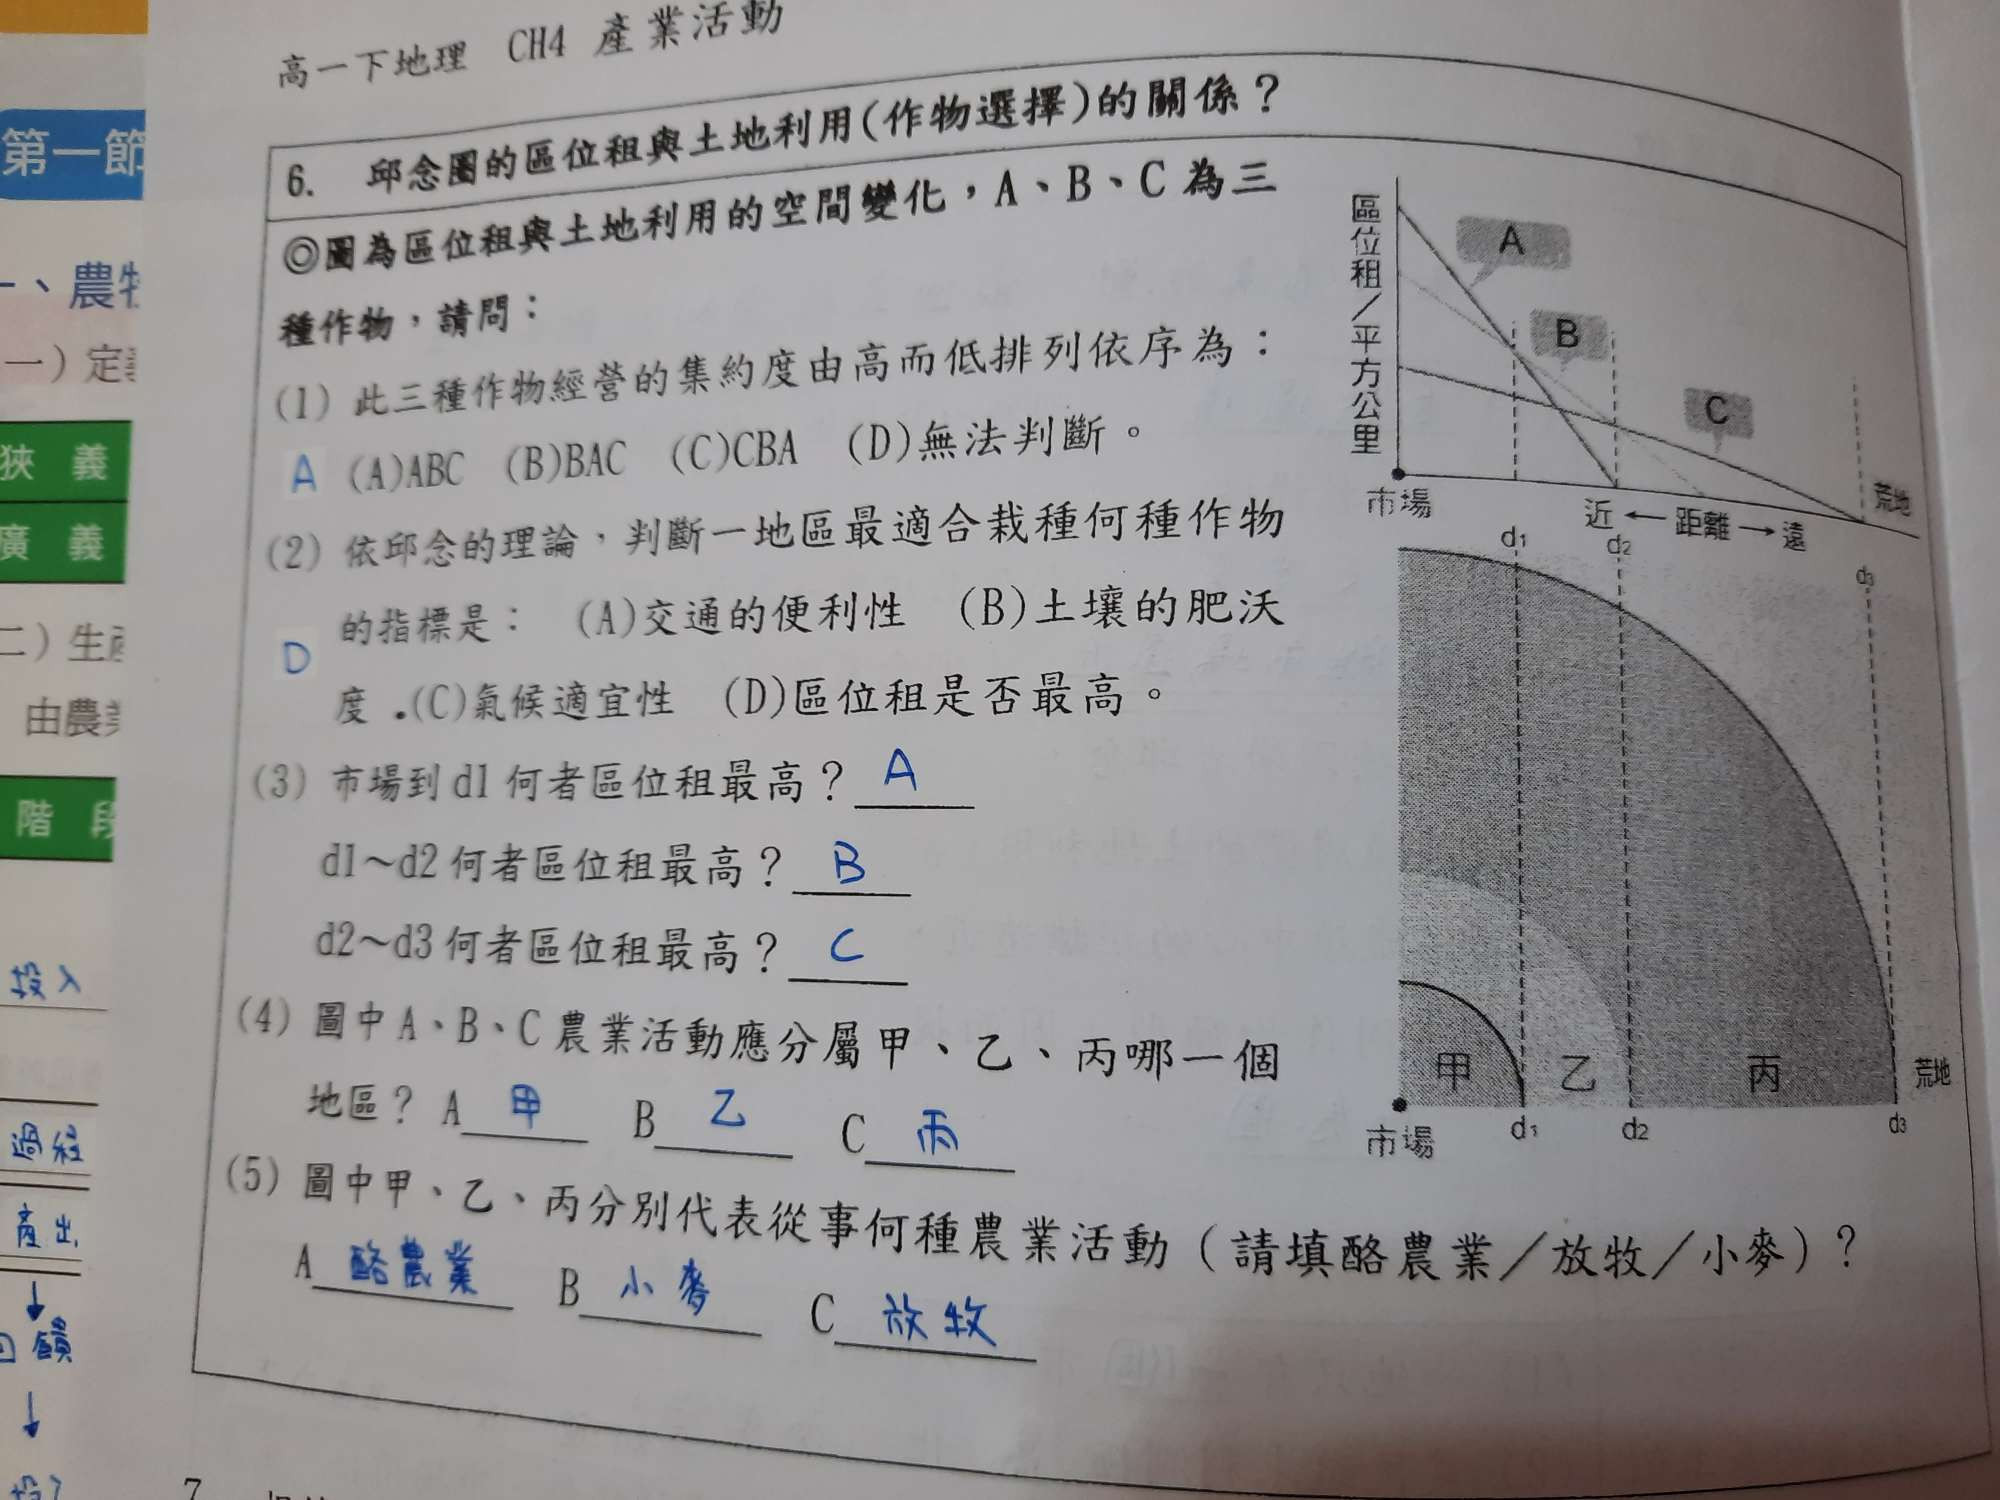 高一下地理 CH4 產業活動
第一節
6. 邱念圈的區位租與土地利用(作物選擇)的關係？
◎圖為區位租與土地利用的空間變化，A、B、C 為三
種作物，請問：
(1) 此三種作物經營的集約度由高而低排列依序為：
A (A)ABC (B)BAC (C)CBA (D)無法判斷。
(2) 依邱念的理論，判斷一地區最適合栽種何種作物
的指標是： (A)交通的便利性 (B)土壤的肥沃
D
度 .(C)氣候適宜性 (D)區位租是否最高。
(3) 市場到 d1 何者區位租最高？ A
d1～d2 何者區位租最高？ B
d2～d3 何者區位租最高？ C
(4) 圖中 A、B、C 農業活動應分屬甲、乙、丙哪一個
地區？ A 甲 B 乙 C 丙
(5) 圖中甲、乙、丙分別代表從事何種農業活動（請填酪農業／放牧／小麥）？
A 酪農業 B 小麥 C 放牧
區位租／平方公里
A
B
C
市場
荒地
近 ← 距離 → 遠
d1
d2
d3
甲 乙 丙 荒地
市場
d1 d2 d3
一、農牧
一）定
狹 義
廣 義
二）生
由農
階 段
投入
過程
產出
↓
回饋
↓
7